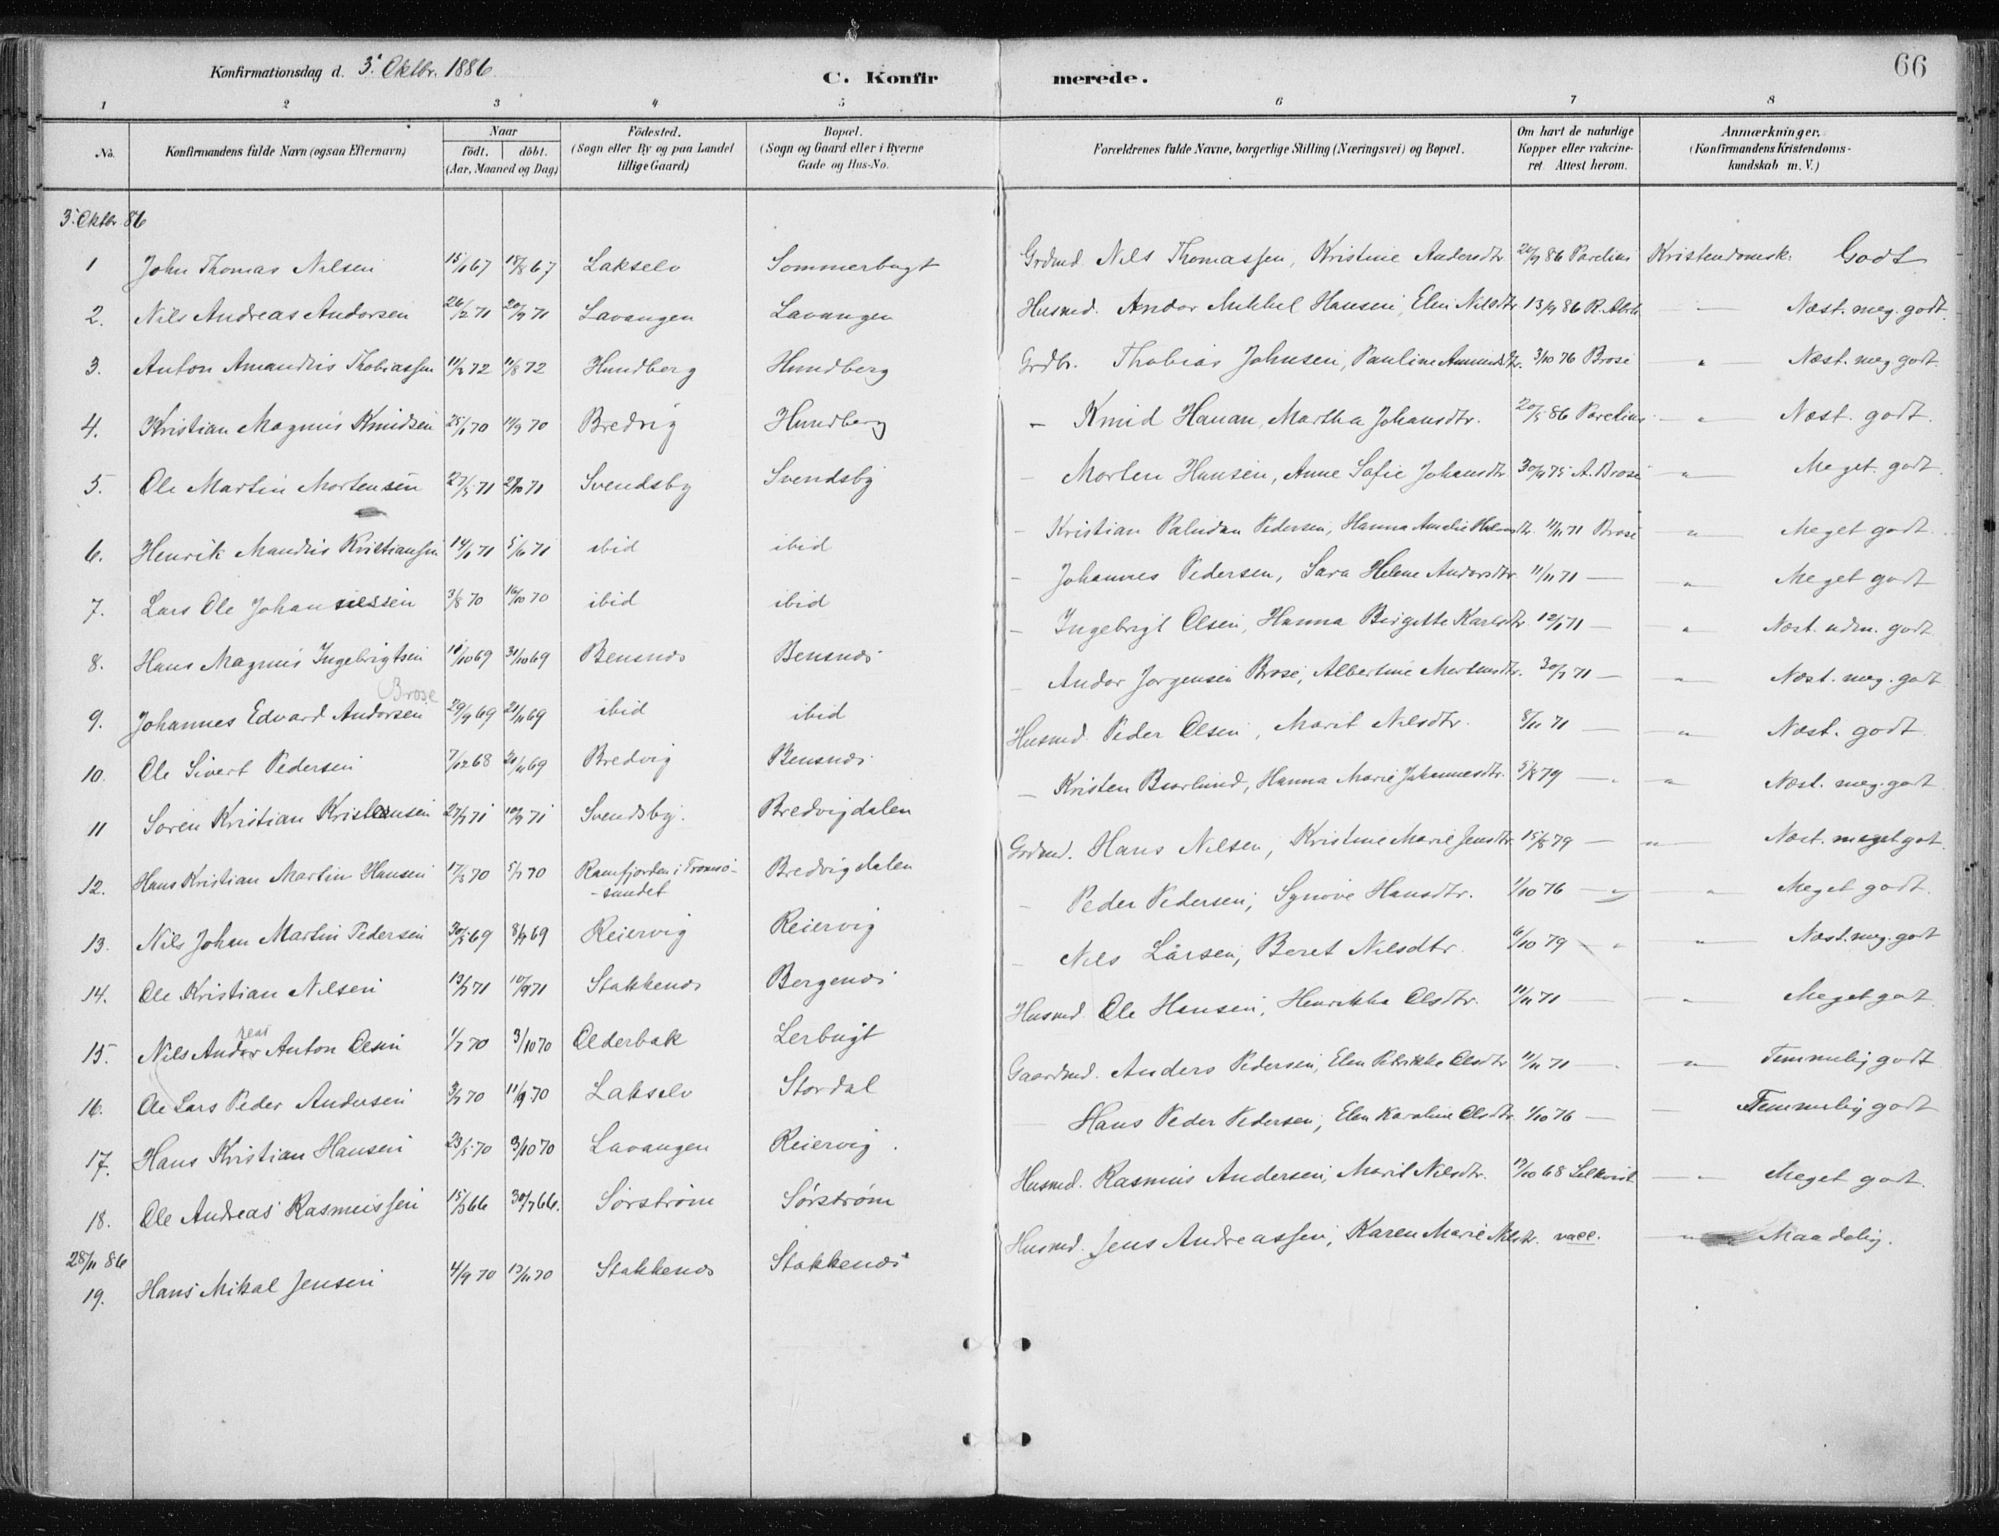 Konfirmationsdag d. 3. Oktbr. 1886
C. Konfirmerede.
66
1 2 3 4 5 6 7 8
No. Konfirmandens fulde Navn (ogsaa Efternavn) Naar födt. döbt. (Aar, Maaned og Dag) Födested. (Sogn eller By og paa Landet tillige Gaard) Bopæl. (Sogn og Gaard eller i Byerne Gade og Hus-No. Forældrenes fulde Navne, borgerlige Stilling (Næringsvei) og Bopæl. Om havt de naturlige Kopper eller vakcineret. Attest herom. Anmærkninger. (Konfirmandens Kristendomskundskab m. V.)
3. Oktbr 86
1 John Thomas Nilsen 67 67 Lakselv Sommerbugt Grdmd. Nils Thomassen, Kristine Andersdtr 86 Parelius Kristendomsk: Godt
2. Nils Andreas Andorsen 26/2 71 71 Lavangen Lavangen Husmd. Andor Mikkel Hansen, Elen Nilsdtr 13/9 86 — Næst. meg. godt.
3. Anton Amandus Thobiassen 72 11/8 72 Hundberg Hundberg Grdbr. Thobias Johnsen, Pauline 3/10 76 Brose " Næst. meg godt.
4. Kristian Magnus Knudsen 70 70 Bredvig Hundberg — Knud Hanan, Martha Johansdtr. 20/5 86 Parelius — " — Næst. godt.
5. Ole Martin Mortensen 27/5 71 71 Svendsby Svendsby — Morten Hansen, Anne Sofie Johansdtr 75 A. Brose — " — Meget. godt.
6. Henrik Mandius Kristiansen 71 71 ibid ibid — Kristian Paludan Pedersen, Hanna Amelie 11/11 71 Brose — " — Meget godt.
7. Lars Ole Johannessen 3/8 70 16/10 70 ibid ibid — Johannes Pedersen, Sara Helene Andorsdtr. 11/11 71 — " Meget godt
8. Hans Magnus Ingebrigtsen 69 31/10 69 Bensnæs Bensnæs — Ingebrigt Olsen, Hanna Birgitte Karlsdtr. 71 — " Næst. udm. godt
9. Johannes Edvard Andorsen Brose 29/9 69 69 ibid ibid — Andor Jørgensen Brose, Albertine Mortensdtr. 71 — " Næst. meg. godt
10. Ole Sivert Pedersen 7/12 68 69 Bredvig Bensnæs Husmd. Peder Olsen, Marit Nilsdtr. 8/11 71 — " Næst. godt.
11 Søren Kristian Kristensen 71 71 Svendsby. Bredvigdalen — Kristen Hanna Marie Johannesdtr. 79 — " Næst. meg. godt
12. Hans Kristian Martin Hansen 70 70 Ramfjorden i Tromsø-sundet Bredvigdalen Grdmd. Hans Nilsen, Kristine Marie Jensdtr 15/8 79 — " Næst. meget got.
13. Nils Johan Martin Pedersen 69 69 Reiervig Reiervig — Peder Pedersen, Synøve Hansdtr. 1/10 76 — " Meget godt.
14. Ole Kristian Nilsen 71 71 Stakkenæs Borgenæs — Nils Larsen, Beret Nilsdtr. 6/10 79 " " Næst. meg. godt
15. Nils Andreas Anton Olsen 1/7 70 3/10 70 Olderbak Lerbugt Husmd. Ole Hansen, Henrikka Olsdtr. 11/11 71 — " Meget godt
16. Ole Lars Peder Andersen 70 11/9 70 Lakselv Stordal Gaardmd. Anders Pedersen, Elen Petrikke Olsdtr 11/11 71 — " Temmelig godt
17. Hans Kristian Hansen 23/5 70 3/10 70 Lavangen Reiervig. — Hans Peder Pedersen, Elen Karoline Olsdtr. 1/10 76 — — Temmelig godt
18. Ole Andreas Rasmussen 66 66. Sørstrøm Sørstrøm Husmd. Rasmus Andersen, Marit Nilsdtr. 68 — " Meget godt.
28/11 86
19. Hans Mikal Jensen 4/9 70 70 Stakkenæs Stakkenæs Husmd. Jens Andreassen, Karen Marie vacc. " Maadelig.